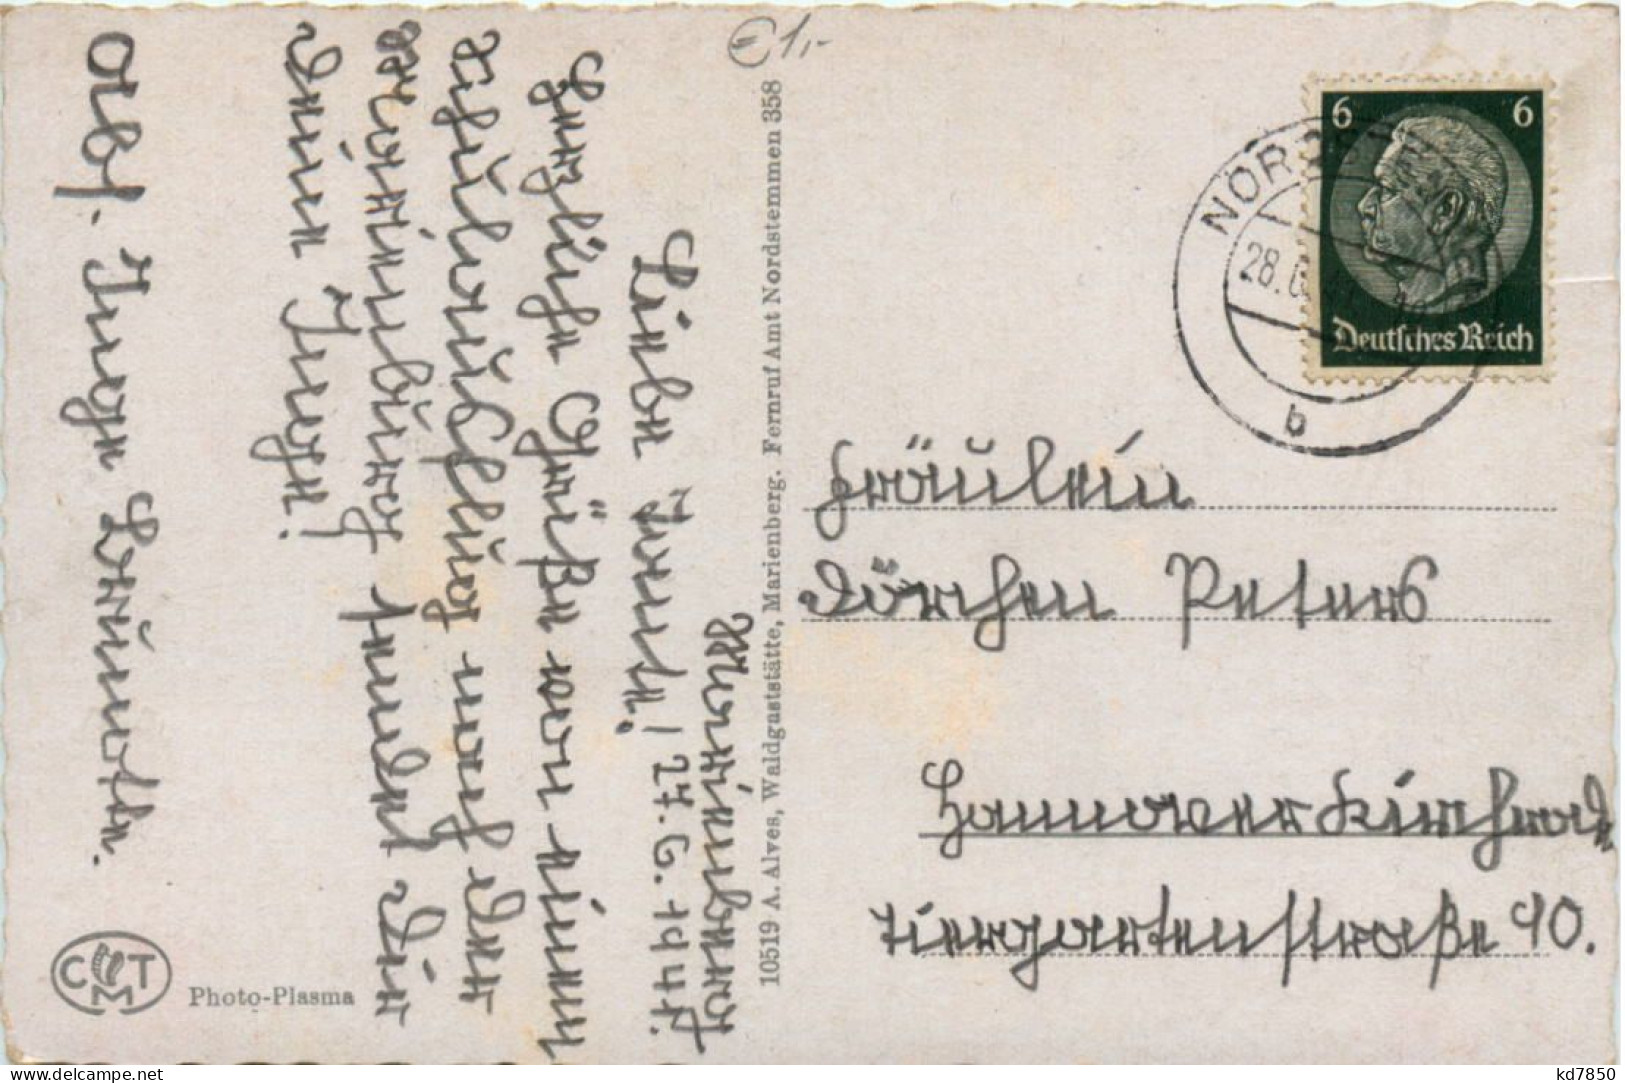 €1,-
Marienberg
27.6.1941.
Liebe Tante!
Herzliche Grüße von einem
Schulausflug nach der
Marienburg sendet Dir
Deine Inge!
Abs. Inge
10519 A. Alves, Waldgaststätte, Marienberg. Fernruf Amt Nordstemmen 358
CMT
Photo-Plasma
6 6
Deutsches Reich
28.6.
b
Fräulein
Dörchen Peters
Hannover Kirchrode
Tiergartenstraße 90.
www.delcampe.net
kd7850